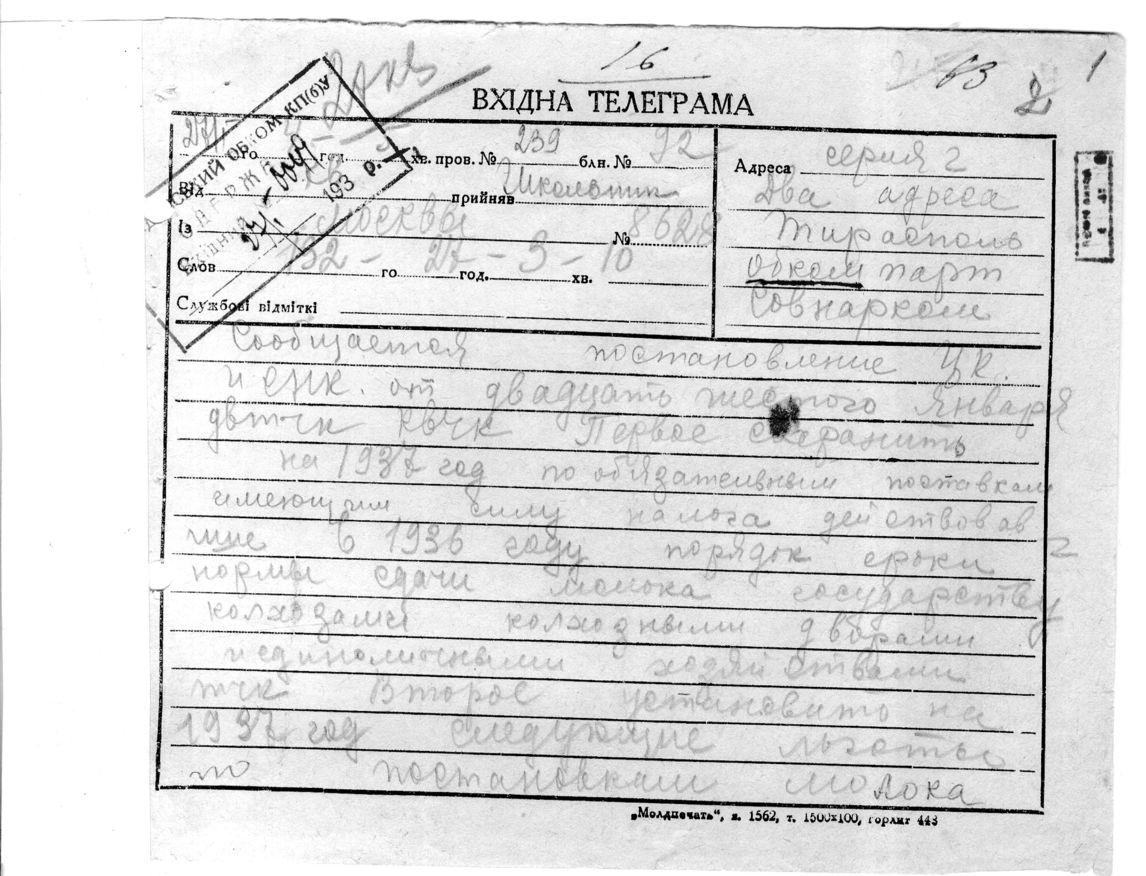 16
63
2
1
ВХІДНА ТЕЛЕГРАМА
27/I го год. хв. пров. № 239 блн. № 92
Від прийняв
Із Москвы № 8628
Слов 732 - го 27 год. - 3 - 10 хв.
Службові відміткі
ОБКОМ КП(б)У
193 р.
Адреса серия г
Два адреса
Тирасполь
обком парт
Совнарком
Сообщается постановление ЦК.
и СНК. от двадцать шестого Января
двтчк квчк Первое сохранить
на 1937 год по обязательным поставкам
имеющим силу налога действовав
шие в 1936 году порядок сроки
нормы сдачи молока государству
колхозами колхозными дворами
и единоличными хозяйствами
тчк Второе установить на
1937 год следующие льготы
по постановкам молока
„Молдпечать“, з. 1562, т. 1500х100, горліт 443